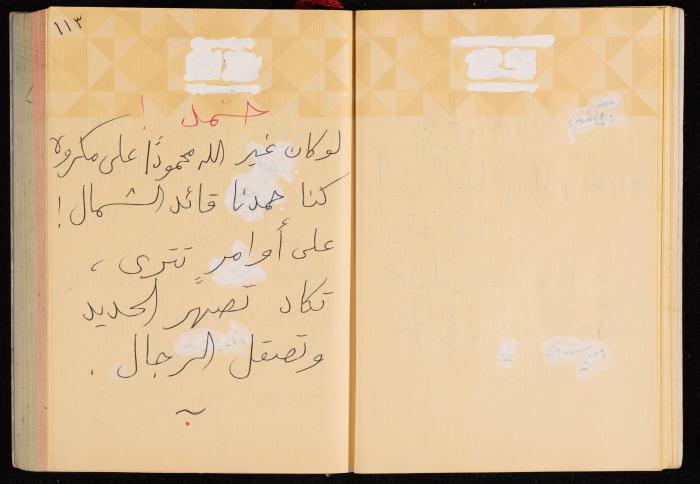 ١١٣
حمد !
لو كان غير الله محمودًا على مكروه
كنا حمدنا قائد الشمال !
على أوامرٍ تترى ،
تكاد تصهر الحديد
وتصقل الرجال .